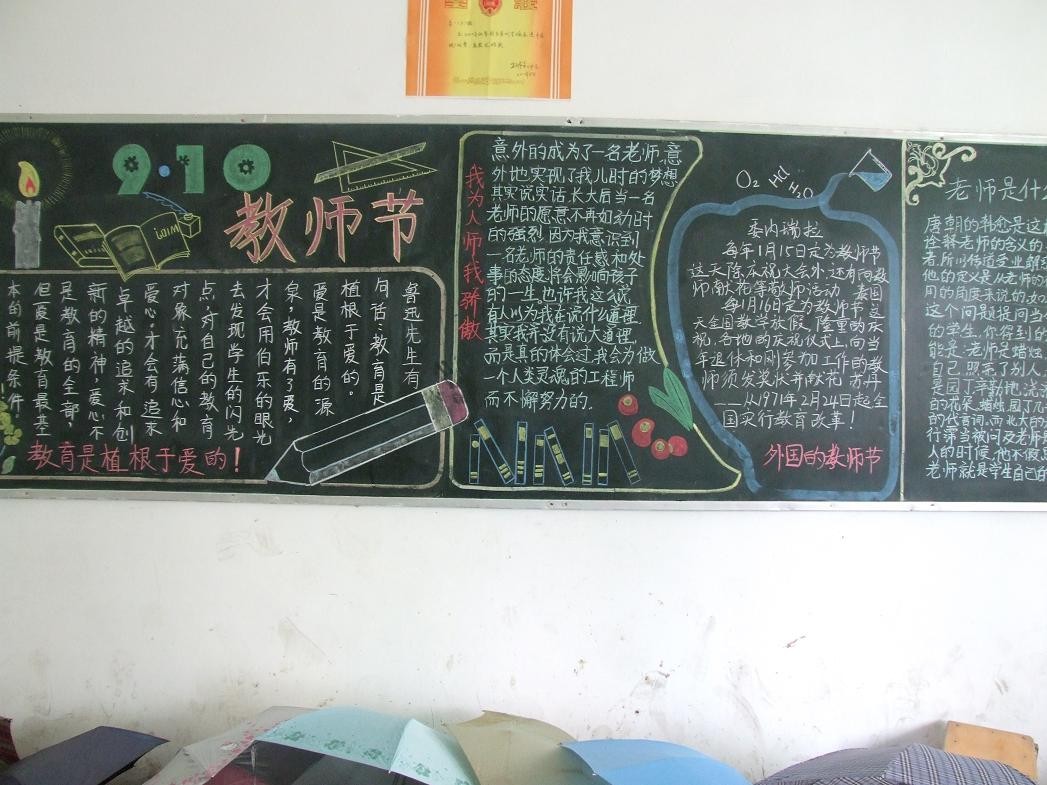 9·10
教师节
鲁迅先生有
句话:教育是
植根于爱的。
爱是教育的源
泉,教师有了爱,
才会用伯乐的眼光
去发现学生的闪光
点,对自己的教育
对象充满信心和
爱心,才会有追求
卓越的追求和创
新的精神,爱心不
是教育的全部,
但爱是教育最基
本的前提条件.
教育是植根于爱的!
我为人师我骄傲
意外的成为了一名老师,意
外地实现了我儿时的梦想
其实说实话,长大后当一名
老师的愿意不再如幼时
的强烈.因为我意识到
一名老师的责任感和处
事的态度将会影响孩子
的一生.也许我这么说,
有人以为我在说什么道理
其实我并没有说大道理,
而是真的体会过,我会为做
一个人类灵魂的工程师
而不懈努力的.
O₂ Hcl H₂O
委内瑞拉
每年1月15日定为教师节
这天除庆祝大会外,还有向教
师献花等敬师活动 泰国
每1月16日定为教师节,这
天全国教学放假,隆重的庆
祝,各地的庆祝仪式上,向当
年退休和刚参加工作的教
师须发奖状并献花 芬丹
——从1971年2月24日起全
国实行教育改革!
外国的教师节
老师是什
唐朝的韩愈是这
诠释老师的含义的
者,所以传道受业解
他的定义是从老师的
用的角度来说的.如
这个问题提问当
的学生,你得到的
能是:老师是蜡烛,
自己.照亮了别人
是园丁,辛勤地,浇
的花朵.蜡烛,园丁几
的代言词.而北大的
行第当被问及老师是
人的时候,他不假思
老师就是学生自己的